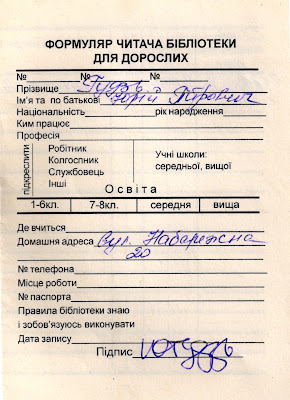 ФОРМУЛЯР ЧИТАЧА БІБЛІОТЕКИ
ДЛЯ ДОРОСЛИХ
№ № №
Прізвище Гудзь
Ім'я та по батькові Юрій Петрович
Національність рік народження
Ким працює
Професія
підкреслити
Робітник
Колгоспник
Службовець
Інші
Учні школи:
середньої, вищої
Освіта
1-6кл. 7-8кл. середня вища
Де вчиться
Домашня адреса вул. Набережна
20
№ телефона
Місце роботи
№ паспорта
Правила бібліотеки знаю
і зобов'язуюсь виконувати
Дата запису
Підпис ЮГудзь